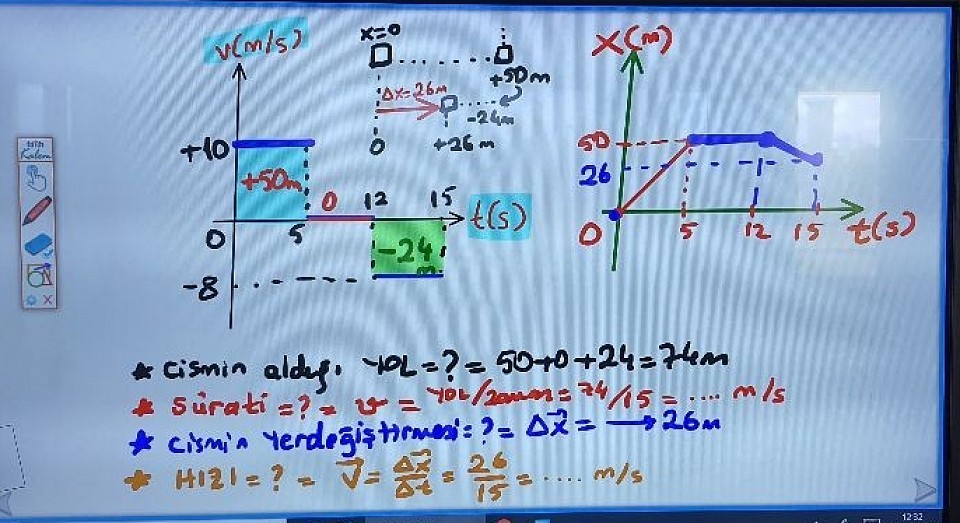 v(m/s)
x=0
+50m
Δx=26m
-24m
0
+26m
+10
+50m
0
12
15
t(s)
0
5
-24
m
-8
x(m)
50
26
0
5
12
15
t(s)
Kalem
* Cismin aldığı YOL=? = 50+0+24=74m
* Sürati=? = v = YOL/zaman= 74/15 = .... m/s
* Cismin Yerdeğiştirmesi=? = Δx⃗ = → 26m
* HIZI=? = V⃗ = Δx⃗/Δt = 26/15 = .... m/s
12:32